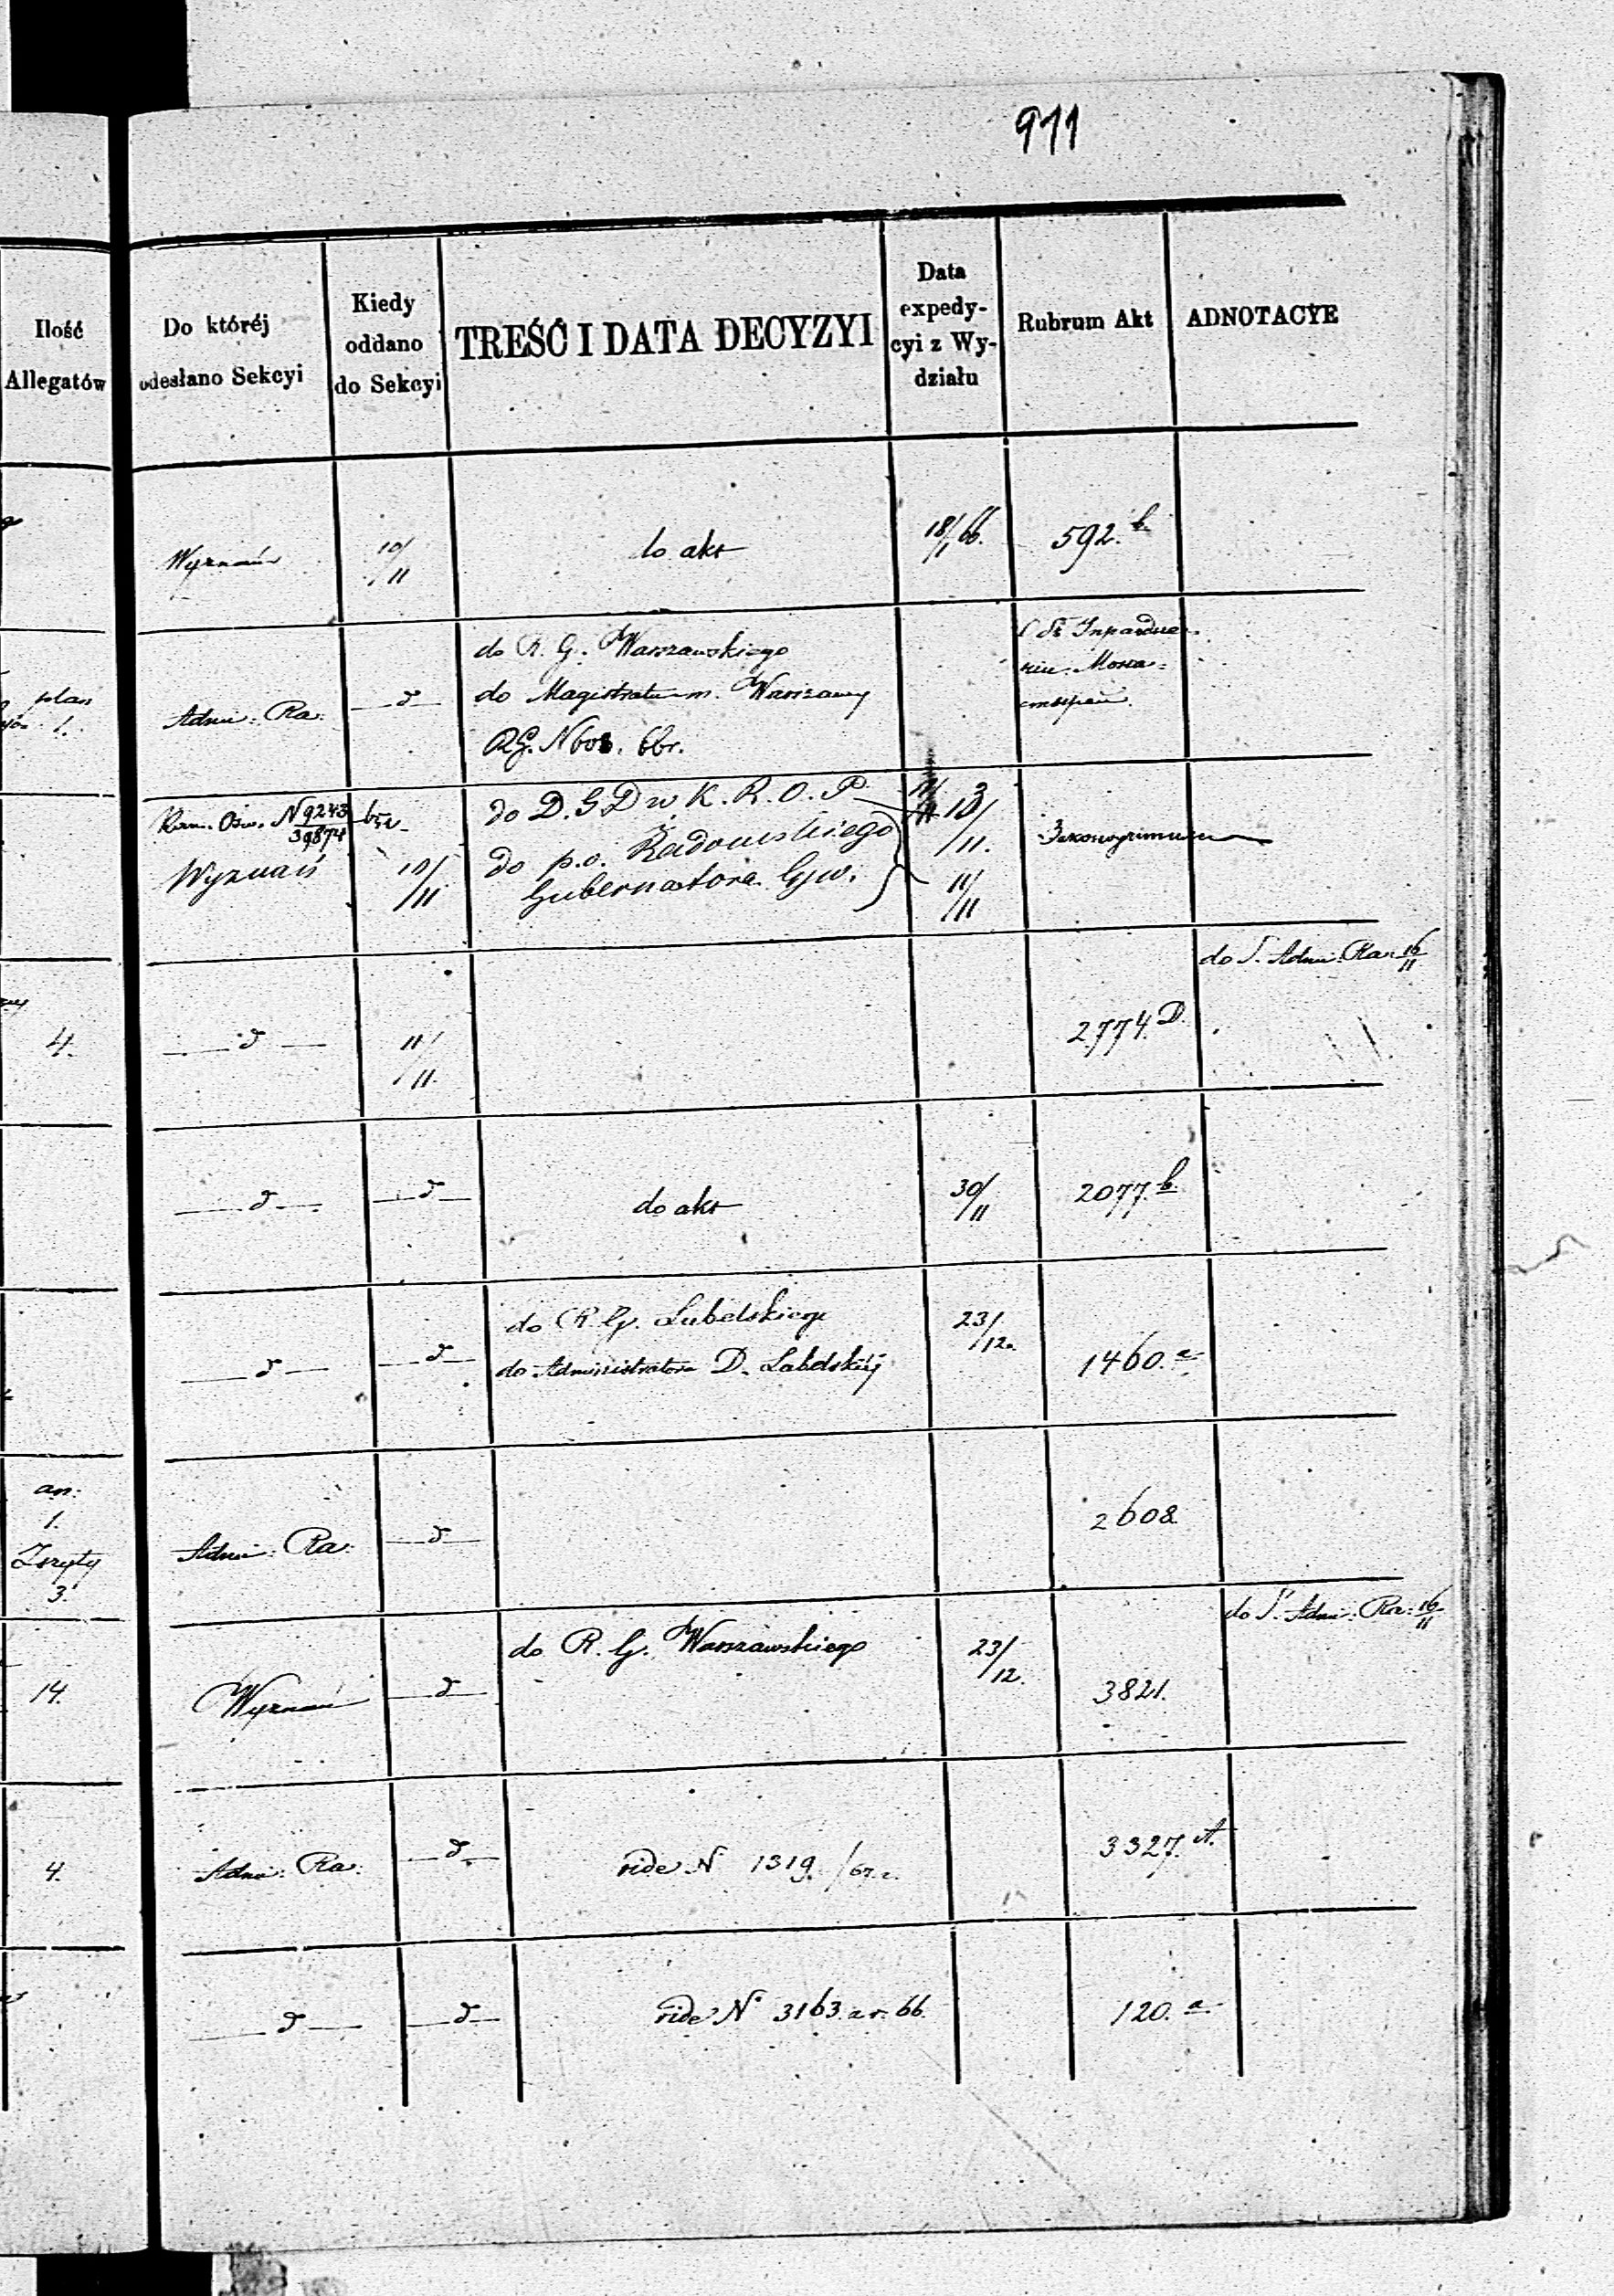 911
Ilość
Allegatów
Do któréj
odesłano Sekcyi
Kiedy
oddano
do Sekcyi
TREŚĆ I DATA DECYZYI
Data
expedy-
cyi z Wy-
działu
Rubrum Akt
ADNOTACYE
Wyznań
10/11
do akt
18/1 66.
592. b.
plan
1.
Adm: Ra:
d
do R. G. Warszawskiego
do Magistratu m. Warszawy
RG. N 608. 66r.
Kom. Ośw. N 9243
39874
Wyznań
10/11
do D. G D w K. R. O. P.
do p.o. Radomskiego
Gubernatora Gjw.
10/11.
11/11
4.
d
11/11.
2774. D.
do S. Adm: Ra: 16/11
d
d
do akt
30/11
2077. b.
d
d
do R. G. Lubelskiego
do Administratora D. Lubelskiéj
23/12.
1460. a.
an:
1.
Zszyty
3.
Adm: Ra:
d
2608.
14.
Wyznań
d
do R. G. Warszawskiego
23/12.
3821.
do S. Adm: Ra: 16/11
4.
Adm: Ra:
d
vide N 1319.
3327. A.
d
d
vide N° 3163. z r. 66.
120. a.